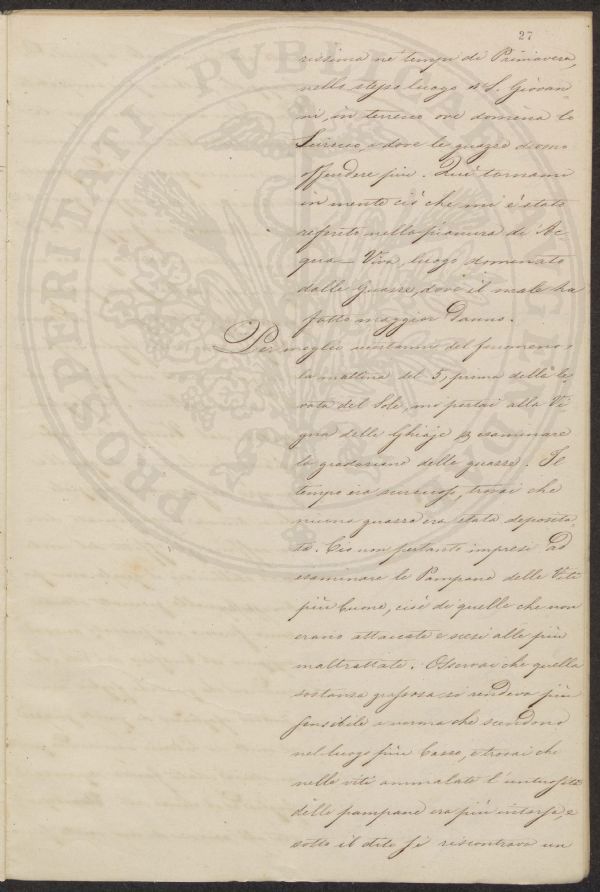 27
rissima ne' tempi di Primavera,
nello stesso luogo di S. Giovan-
ni, in terreno ove domina lo
Scirocco, e dove le guazze devono
offendere più. Qui tornami
in mente ciò che mi è stato
referito nella pianura di Ac-
qua-Viva, luogo dominato
dalle Guazze, dove il male ha
fatto maggior Danno.
Per meglio del fenomeno,
la mattina del 5, prima della le-
vata del Sole, mi portai alla Vi-
gna delle Ghiaje p esaminare
la gradazione delle guazze. Il
tempo era trovai che
niuna guazza era stata deposita-
ta. Ciò non pertanto impresi ad
esaminare le Pampane delle Viti
più buone, cioè di quelle che non
erano attaccate e scesi alle più
maltrattate. Osservai che quella
sostanza grassosa si rendeva più
sensibile a norma che scendono
nel luogo più basso, e trovai che
nelle viti ammalate l'untuosità
delle pampane era più intensa, e
sotto il dito si riscontrava un
PROSPERITATI PUBLICAE AUGENDAE